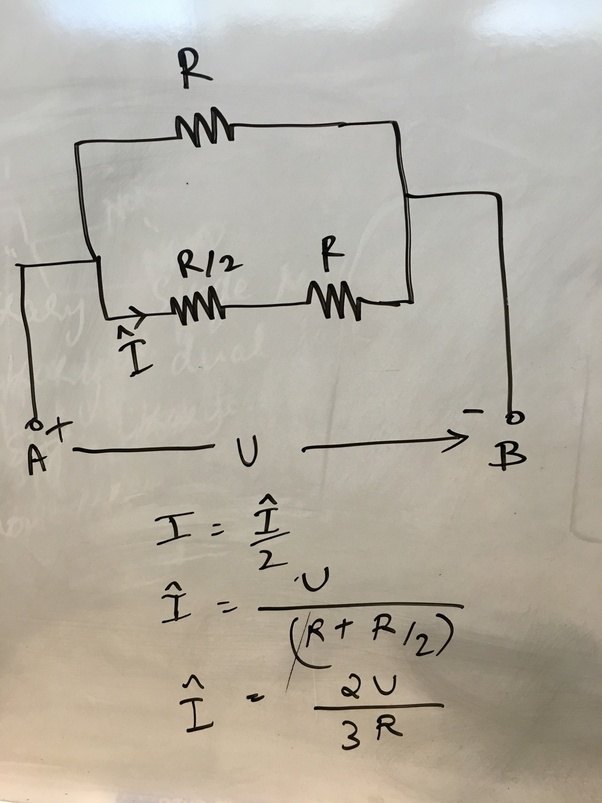 R
R/2 R
Î
A + U - B
I = Î/2
Î = U/(R + R/2)
Î = 2U/3R